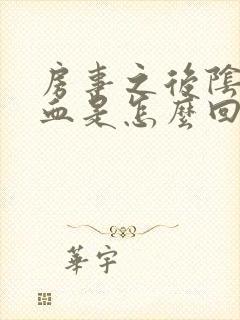 房事之後陰
血是怎麼回
華宇